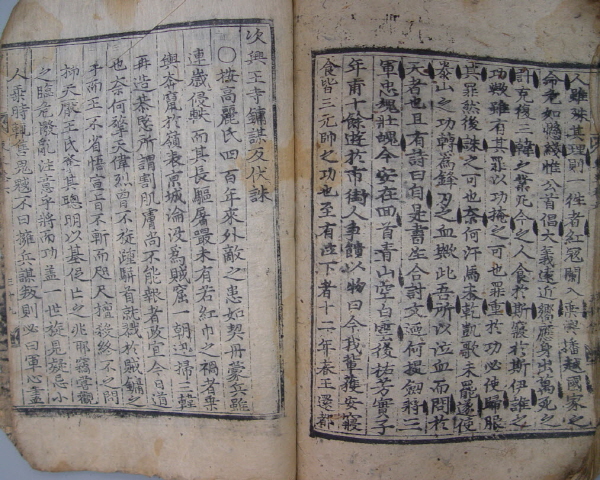 人雖殊其理則一往者紅冠闌入乘輿播越國家之
命危如懸綫惟公首倡大義遠近嚮應身出萬死之
計克復三韓之業凡今之人食於斯寢於斯伊誰之
功歟雖有其罪以功掩之可也罪重於功必使歸服
其罪然後誅之可也奈何汗馬未乾凱歌未罷遂使
泰山之功轉爲鋒刃之血歟此吾所以泣血而問於
天者也且有詩曰自是書生合討文迺何投劒將三
軍忠魂壯魄今安在回首青山空白雲後祐芳實子
年甫十餘遊於市街人爭饋以物曰今我輩獲安寢
食皆三元帥之功也至有泣下者十二年恭王還都
次興王寺鏞謀反伏誅
○按高麗氏四百年來外敵之患如契丹蒙兵雖
連歲侵軼而其長驅屠未有若紅巾之禍者乘
輿奔竄於嶺表京城淪没爲賊窟一朝迅掃三韓
再造恭愍所謂割肌膚尚不能報者政宣今日道
也奈何擎天偉烈曾不旋踵騈首就戮於賊鏞之
手而王不省悟旨不斬而咫天擅殺終不之問
抑天厭王氏奪其聰明以基亡之兆耶竊嘗觀
之臨危亂注意乎將而功盖一世旋見疑忌小
人乘時鬼不曰擁兵謀叛則必曰軍心盡